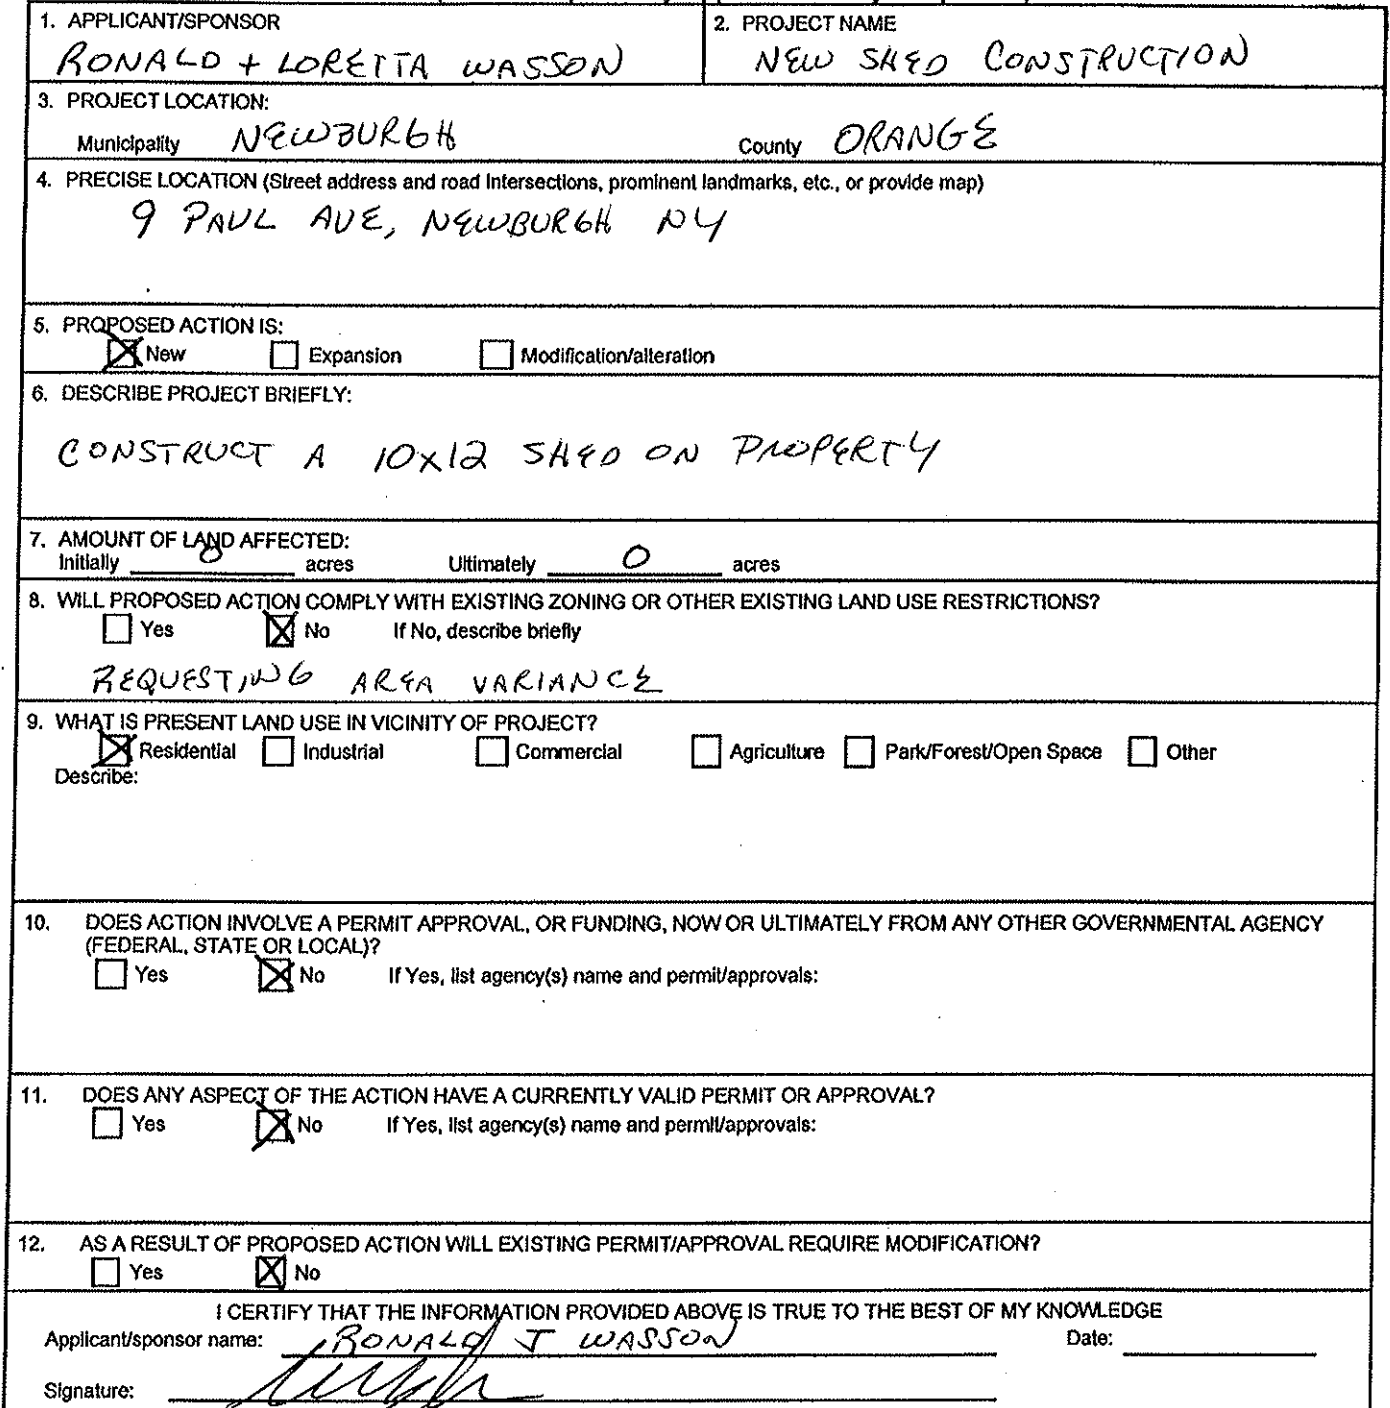 1. APPLICANT/SPONSOR
RONALD + LORETTA WASSON
2. PROJECT NAME
NEW SHED CONSTRUCTION
3. PROJECT LOCATION:
Municipality NEWBURGH County ORANGE
4. PRECISE LOCATION (Street address and road intersections, prominent landmarks, etc., or provide map)
9 PAUL AVE, NEWBURGH NY
5. PROPOSED ACTION IS:
New Expansion Modification/alteration
6. DESCRIBE PROJECT BRIEFLY:
CONSTRUCT A 10x12 SHED ON PROPERTY
7. AMOUNT OF LAND AFFECTED:
Initially 0 acres Ultimately 0 acres
8. WILL PROPOSED ACTION COMPLY WITH EXISTING ZONING OR OTHER EXISTING LAND USE RESTRICTIONS?
Yes No If No, describe briefly
REQUESTING AREA VARIANCE
9. WHAT IS PRESENT LAND USE IN VICINITY OF PROJECT?
Residential Industrial Commercial Agriculture Park/Forest/Open Space Other
Describe:
10. DOES ACTION INVOLVE A PERMIT APPROVAL, OR FUNDING, NOW OR ULTIMATELY FROM ANY OTHER GOVERNMENTAL AGENCY
(FEDERAL, STATE OR LOCAL)?
Yes No If Yes, list agency(s) name and permit/approvals:
11. DOES ANY ASPECT OF THE ACTION HAVE A CURRENTLY VALID PERMIT OR APPROVAL?
Yes No If Yes, list agency(s) name and permit/approvals:
12. AS A RESULT OF PROPOSED ACTION WILL EXISTING PERMIT/APPROVAL REQUIRE MODIFICATION?
Yes No
I CERTIFY THAT THE INFORMATION PROVIDED ABOVE IS TRUE TO THE BEST OF MY KNOWLEDGE
Applicant/sponsor name: RONALD J WASSON Date:
Signature: